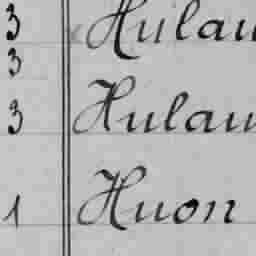 3 Hulau
3
3 Hulau
1 Huon